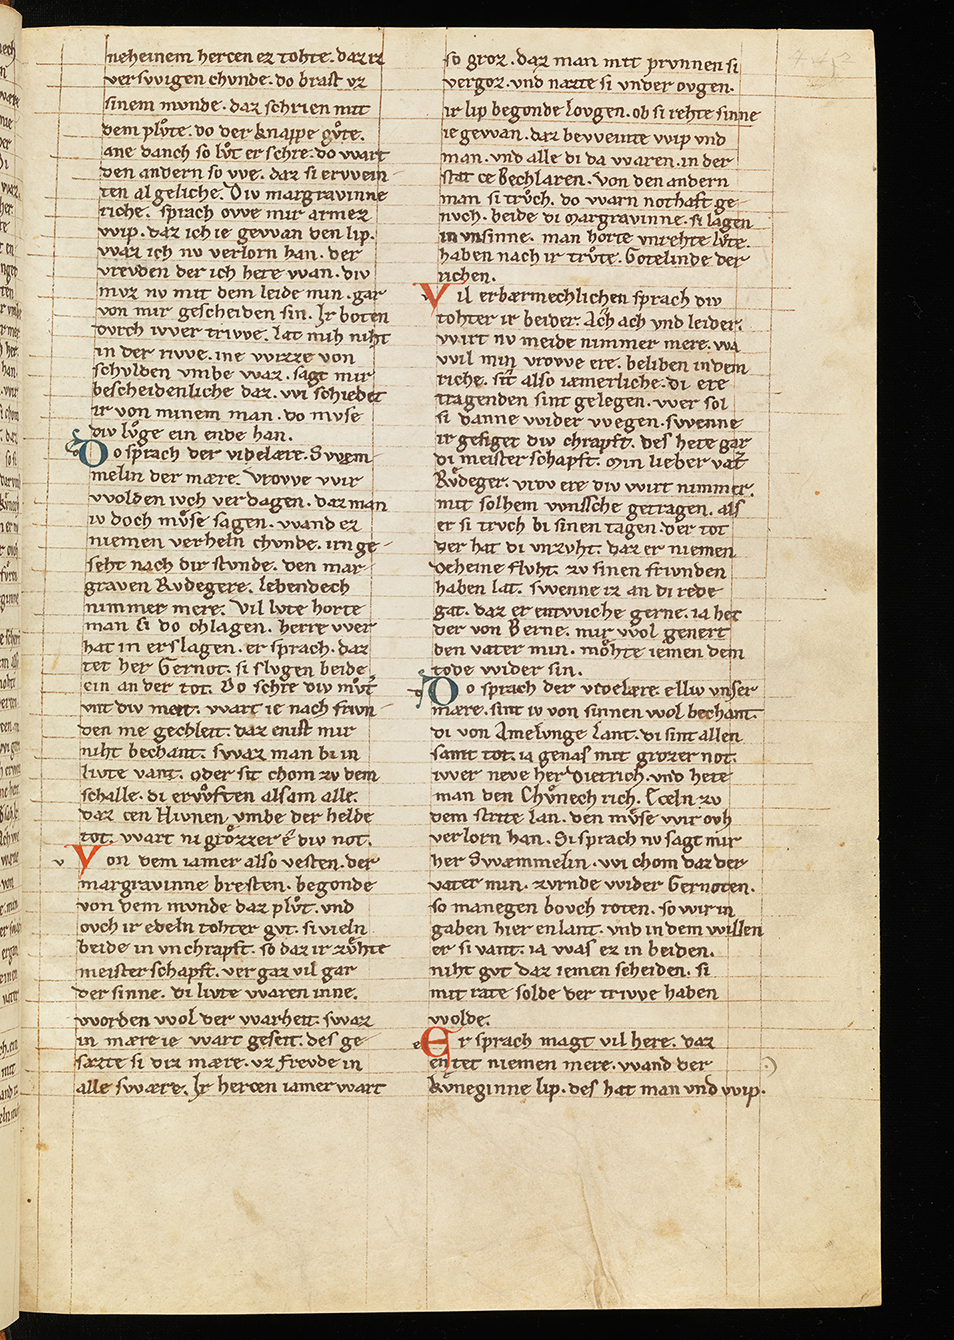 neheinem hercen ez tohte. daz iz
verswigen chunde. do brast vz
sinem munde. daz schrien mit
dem plůte. do der knappe gůte.
ane danch so lůt er schre. do wart
den andern so we. daz si erwein-
ten al geliche. Div margravinne
riche. sprach owe mir armez
wip. daz ich ie gewan den lip.
waz ich nv verlorn han. der
vrevden der ich hete wan. div
mvz nv mit dem leide min. gar
von mir gescheiden sin. Ir boten
dvrch iwer triwe. lat mih niht
in der riwe. ine wizze von
schvlden vmbe waz. sagt mir
bescheidenliche daz. wi schiedet
ir von minem man. do mvse
div lůge ein ende han.
Do sprach der videlære. Swem-
melin der mære. Vrowe wir
wolden ivch verdagen. daz man
iv doch můse sagen. wand ez
niemen verheln chvnde. irn ge-
seht nach dir stvnde. den mar-
graven Rvdegere. lebendech
nimmer mere. Vil lvte horte
man si do chlagen. herre wer
hat in erslagen. er sprach. daz
tet her Gernot. si slvgen beide
ein an der tot. Do schre div můt
vnt div meit. wart ie nach frivn-
den me gechleit. daz enist mir
niht bechant. swaz man bi in
livte vant. oder sit chom zv dem
schalle. di erwͦften alsam alle.
daz cen Hivnen vmbe der helde
tot. wart ni grôzzer ê div not.
Von dem iamer also vesten. der
margravinne bresten. begonde
von dem mvnde daz plůt. vnd
ovch ir edeln tohter gvt. si vieln
beide in vnchrapft. so daz ir zůhte
meisterschapft. vergaz vil gar
der sinne. di livte waren inne.
worden wol der warheit. swaz
in mære ie wart geseit. des ge-
sazte si diz mære. vz frevde in
alle swære. Ir hercen iamer wart
so groz. daz man mit prvnnen si
vergoz. vnd nazte si vnder ovgen.
ir lip begonde lovgen. ob si rehte sinne
ie gewan. daz beweinte wip vnd
man. vnd alle di da waren. in der
stat ce Bechlaren. Von den andern
man si trůch. do warn nothaft ge-
nvch. beide di margravinne. si lagen
in vnsinne. man horte vnrehte lůte.
haben nach ir trůte. Gotelinde der
richen.
Vil erbærmechlichen sprach div
tohter ir beider. Ach ach vnd leider.
wirt nv meide nimmer mere. wa
wil min vrowe ere. beliben in dem
riche. sit also iæmerliche. di ere
tragenden sint gelegen. wer sol
si danne wider wegen. swenne
ir gesiget div chrapft. des hete gar
di meisterschapft. Min lieber vat
Růdeger. vrov ere div wirt nimmer.
mit solhem wnssche getragen. als
er si trvch bi sinen tagen. der tot
der hat di vnzvht. daz er niemen
deheine flvht. zv sinen frivnden
haben lat. swenne iz an di rede
gat. daz er entwiche gerne. ia het
der von Berne. mir wol genert
den vater min. mohte iemen dem
tode wider sin.
Do sprach der videlære. elliv vnser
mære. sint iv von sinnen wol bechant.
di von Amelvnge lant. di sint allen
samt tot. ia genas mit grozer not.
iwer neve her Dietrich. vnd hete
man den Chůnech rich. Eceln zv
dem strite lan. den mvse wir ovh
verlorn han. Si sprach nv sagt mir
her Swæmmelin. wi chom daz der
vater min. zvrnde wider Gernoten.
so manegen bovch roten. so wir in
gaben hier en lant. vnd in dem willen
er si vant. ia was ez in beiden.
niht gvt daz iemen scheiden. si
mit rate solde der triwe haben
wolde.
Er sprach magt vil here. daz
entet niemen mere. wand der
kvneginne lip. des hat man vnd wip.